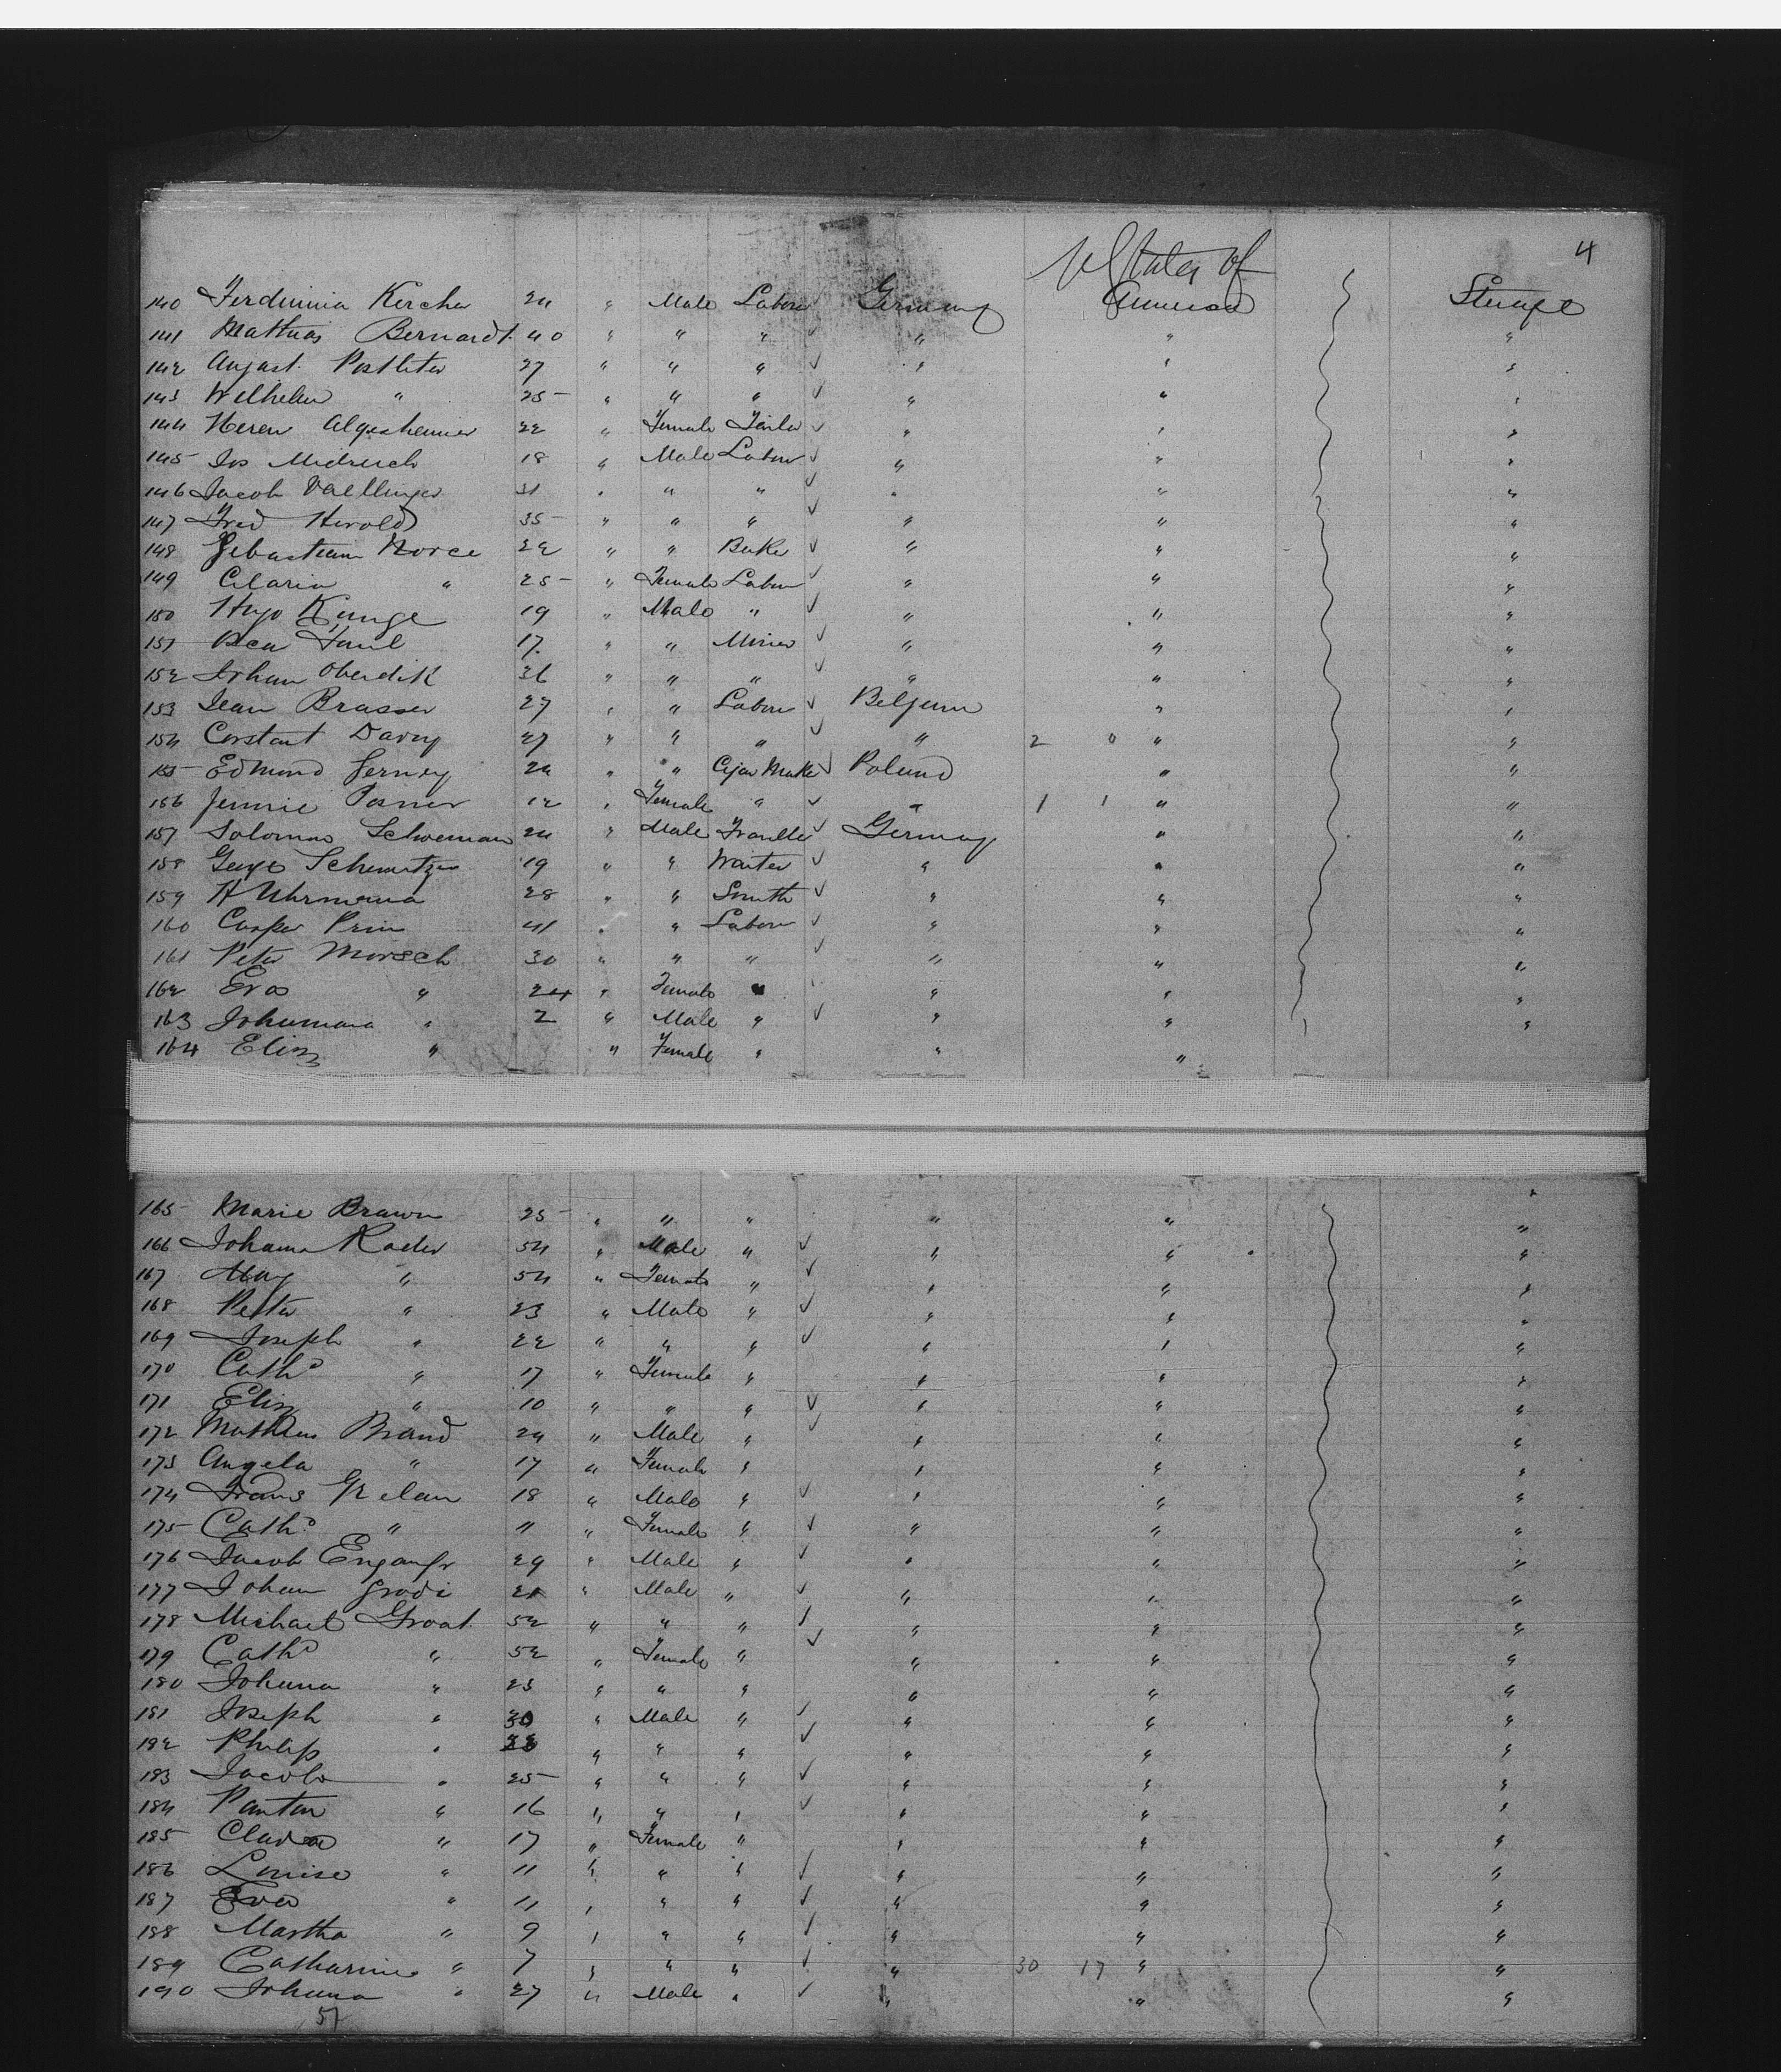 4
U States of
140 Kercher 24 " Male Labore Germany America Steerage
141 Mathias Bernardt 40 " " " " " "
142 August 27 " " " " " "
143 Wilhelm " 25 " " " " " "
144 22 " Female " " "
145 Jos 18 " Male Labour " " "
146 Jacob 31 " " " " " "
147 Fred Herold 35 " " " " " "
148 Sebastian 22 " " Baker " " "
149 " 25 " Female Labour " " "
150 Hugo Kunge 19 " Male " " " "
151 17 " " Miner " " "
152 Johan Oberdik 36 " " " " " "
153 Jean Brasser 27 " " Labore Belgium " "
154 Constant Davry 27 " " " " 2 0 " "
155 Edmond 24 " " Cigar Make Poland " "
156 Jennie Posner 12 " Female " " 1 1 " "
157 Solomon 24 " Male Germany " "
158 George 19 " " Waiter " " "
159 H Uhrmann 28 " " Smith " " "
160 Casper Prim 41 " " Labore " " "
161 Peter Morsch 30 " " " " " "
162 Eva " 24 " Female " " " "
163 " 2 " Male " " " "
164 Eliz " " Female " " "
165 Marie Brawn 25 " " " " " "
166 Johann Rader 54 " Male " " " "
167 May " 54 " Female " " " "
168 Peter " 23 " Male " " " "
169 Joseph " 22 " " " " " "
170 Cath " 17 " Female " " " "
171 Eliz " 10 " " " " " "
172 Mathias Brand 24 " Male " " " "
173 Angela " 17 " Female " " " "
174 Frans 18 " Male " " " "
175 Cath " 11 " Female " " " "
176 Jacob 29 " Male " " " "
177 Johan Grodi 21 " Male " " " "
178 Michael Groat 52 " " " " " "
179 Cath " 52 " Female " " " "
180 Johanna " 23 " " " " " "
181 Joseph " 30 " Male " " " "
182 Philip " " " " " " "
183 Jacob " 25 " " " " " "
184 " 16 " " " " " "
185 Clara " 17 " Female " " " "
186 Louise " 11 " " " " " "
187 Eva " 11 " " " " " "
188 Martha " 9 " " " " " "
189 Catharine " 7 " " " " 30 17 " "
190 Johann " 27 " Male " " " "
51